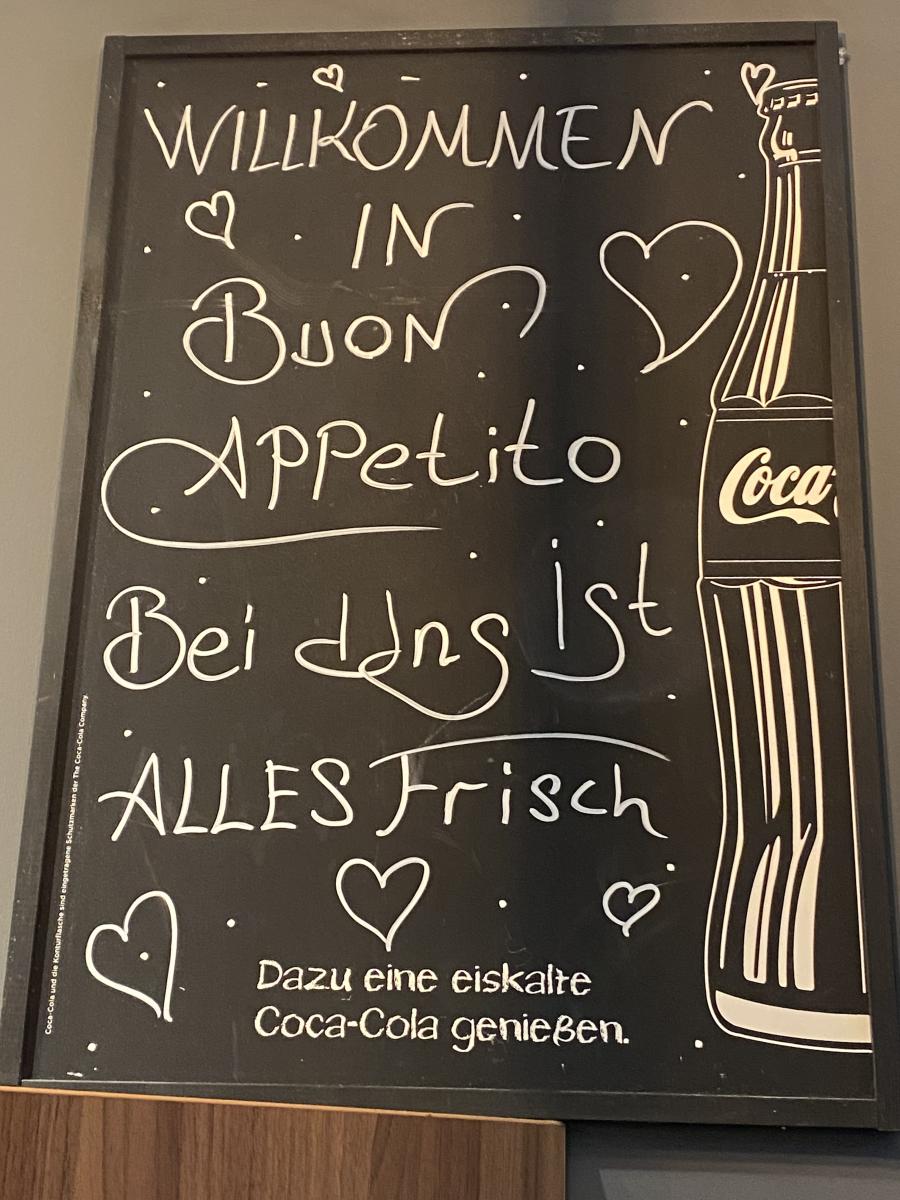 WILLKOMMEN
IN
BUON
APPetito
Bei Uns Ist
ALLES Frisch
Dazu eine eiskalte
Coca-Cola genießen.
Coca
Coca-Cola und die Konturflasche sind eingetragene Schutzmarken der The Coca-Cola Company.